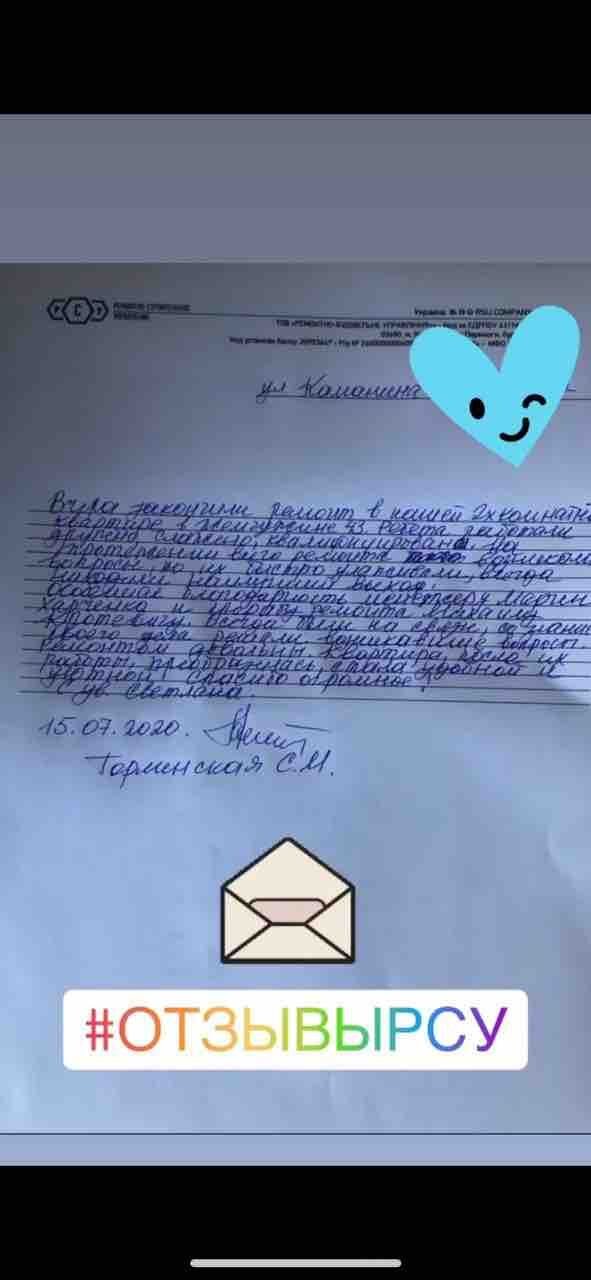 Р С У РЕМОНТНО-СТРОИТЕЛЬНОЕ
УПРАВЛЕНИЕ
Украина RSU COMPAN
ТОВ «РЕМОНТНО-БУДІВЕЛЬНЕ УПРАВЛІННЯ» Код за ЄДРПОУ
03680, м.
ул Каманина
Вчера закончили ремонт в нашей 2хкомнатн
квартире в Жемчужине 43 Ребята работали
дружно слаженно, квалифицированно На
протяжении всего ремонта возникали
вопросы, но их быстро улаживали, всегда
находили наилучший выход.
Особенная благодарность менеджеру
Харченко и прорабу ремонта Михаилу
всегда были на связи, со знанием
своего дела решали возникавшие вопросы.
Ремонтом довольны квартира, после их
работы, преобразилась, стала удобной и
уютной, спасибо огромное!
С ув Светлана.
15.07.2020.
Горминская С.М.
#ОТЗЫВЫРСУ